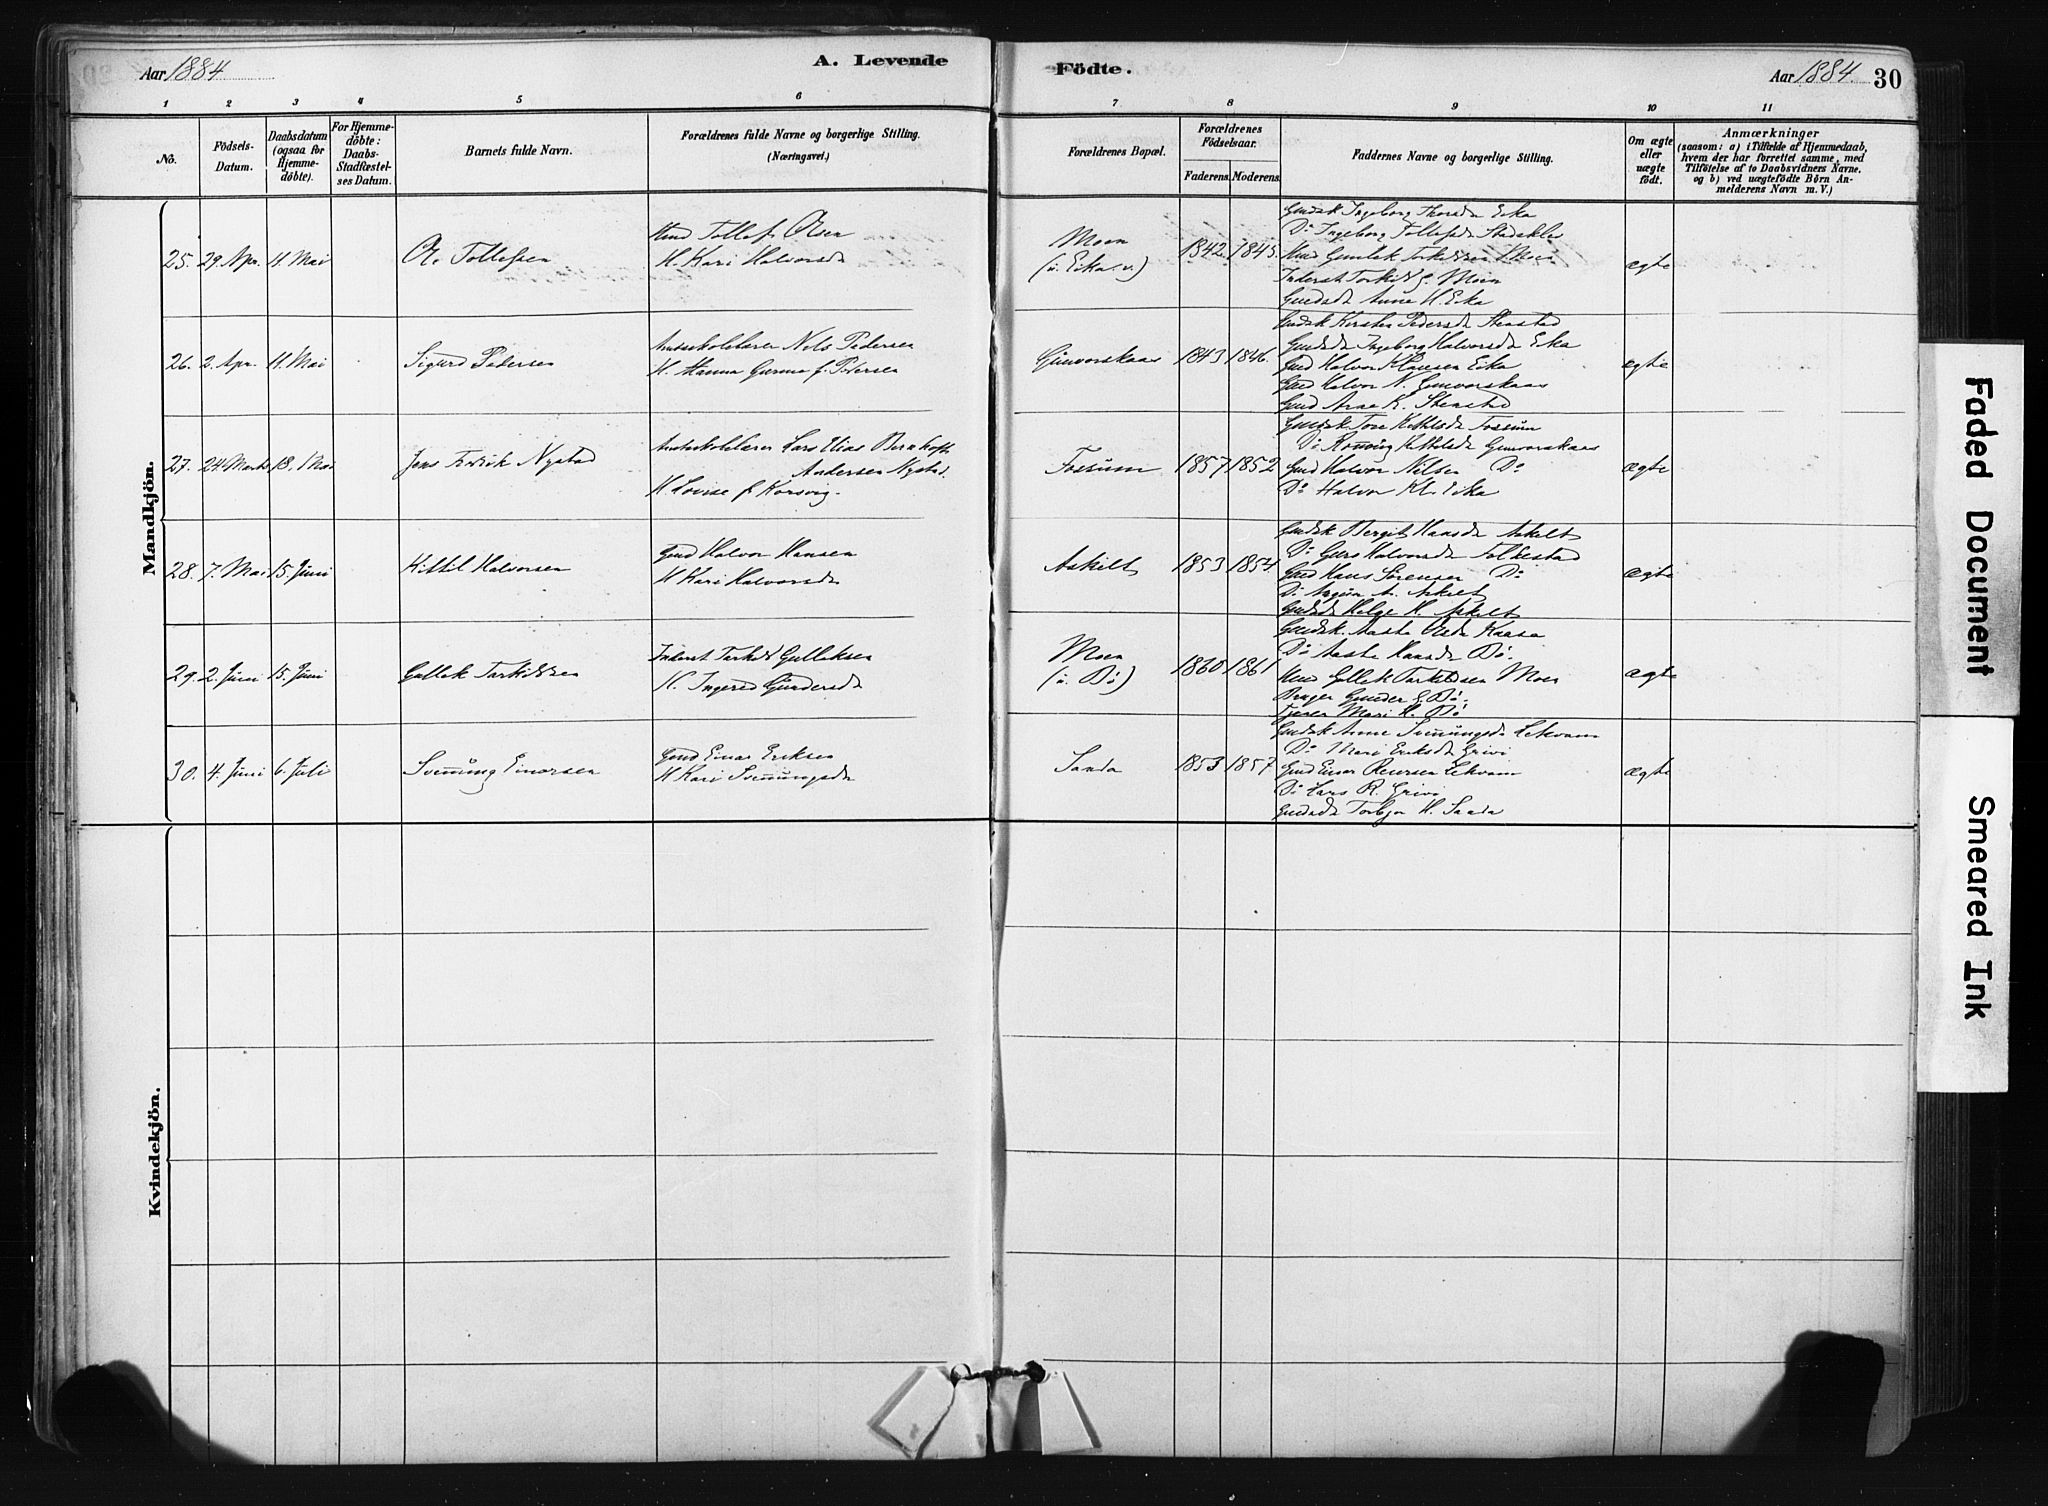 Aar 1884
A. Levende
Födte.
Aar 1884. 30
1 2 3 4 5 6 7 8 9 10 11
No.
Födsels-
Datum.
Daabsdatum
(ogsaa for
Hjemme-
döbte).
For Hjemme-
döbte:
Daabs-
Stadfæstel-
ses Datum.
Barnets fulde Navn.
Forældrenes fulde Navne og borgerlige Stilling.
(Næringsvei.)
Forældrenes Bopæl.
Forældrenes
Födselsaar.
Faderens. Moderens.
Faddernes Navne og borgerlige Stilling.
Om ægte
eller
uægte
födt.
Anmærkninger
(saasom: a) i Tilfælde af Hjemmedaab,
hvem der har forrettet samme, med
Tilföielse af to Daabsvidners Navne.
og b) ved uægtefödte Börn An-
melderens Navn m. V.)
Mandkjön.
25. 29 Apr. 11. Mai
O. Tollefsen
Tollef Olsen
H. Kari Halvorsd
Moen
(u. Eika)
1842. 1845.
Gudsk Ingeborg Thorsd Eika
Do Ingeborg Tollefsd
Moen
Inderst Torkild G. Moen
Anne H. Eika
ægte
26. 2. Apr. 11. Mai
Sigurd Pedersen
Amtsskolelærer Nils Pedersen
H. Hanna Gurine f. Pedersen
Gunvorskaas
1843 1846.
Gudsk Kirsten Pedersd Stenstad
Ingeborg Halvorsd Eika
Gmd Halvor Klausen Eika
Gmd Halvor N. Gunvorskaas
Gmd Arne K. Stenstad
ægte
27. 24. Marts 18. Mai
Jens Fredrik Nystad
Amtsskolelærer Lars Elias Bernhoft
Andersen Nystad.
H Lovise f. Korsvig.
Fossum
1857 1852
Gudsk Tone Kittilsd Fossum
Do Kittilsd Gunvorskaas
Gmd Halvor Nilsen Do
Do Halvor Kl. Eika
ægte
28. 7. Mai 15. Juni
Kittil Halvorsen
Gmd Halvor Hansen
H Kari Halvorsd
Askilt
1853 1854
Gudsk Bergit Hansd Askilt
Do Guro Halvorsd Folkestad
Gmd Hans Sørensen Do
A. Askilt
Helge H. Askilt
ægte
29. 2. Juni 15. Juni
Gullek Tarkildsen
Inderst Tarkild Gulleksen
H. Ingered Gundersd
Moen
(u. Bø)
1860 1861
Gudsk. Aaste Olsd Kaasa
Do Aaste Hansd Bø.
Gullek Tarkildsen Moen
Bruger Gunder E. Bø.
Tjener Mari H. Bø
ægte
30. 4. Juni 6. Juli
Svennung Einarsen
Gmd Einar Eriksen
H Kari Svennungsd
Sanda
1853 1857
Gudsk Anne Svennungsd Lekvam
Do Mari Eriksd Grivi
Gmd Einar Lekvam
Do Lars R. Grivi
Torbjør H. Sanda
ægte
Kvindekjön.
Faded Document
Smeared Ink